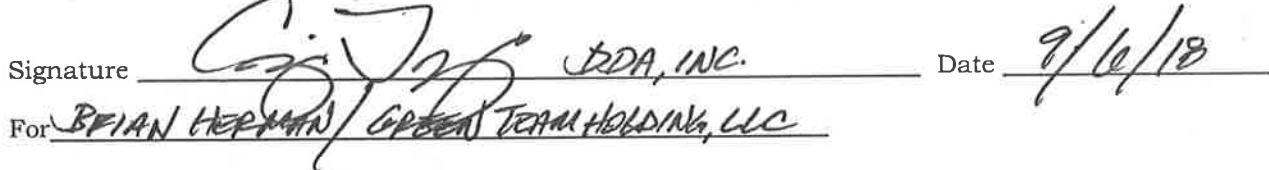 Signature DDA, INC. Date 9/6/18
For BRIAN HERMAN / GREEN TEAM HOLDING, LLC